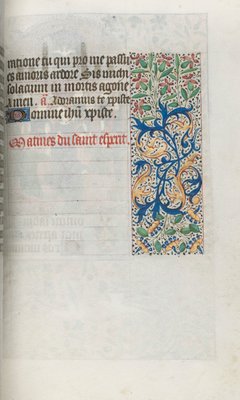 matione tu qui pro me passus
es amoris ardore Sis michi
solacium in mortis agone
Amen. a. Adoramus te xpiste
Domine ihu xpiste.
Matines du saint esperit.